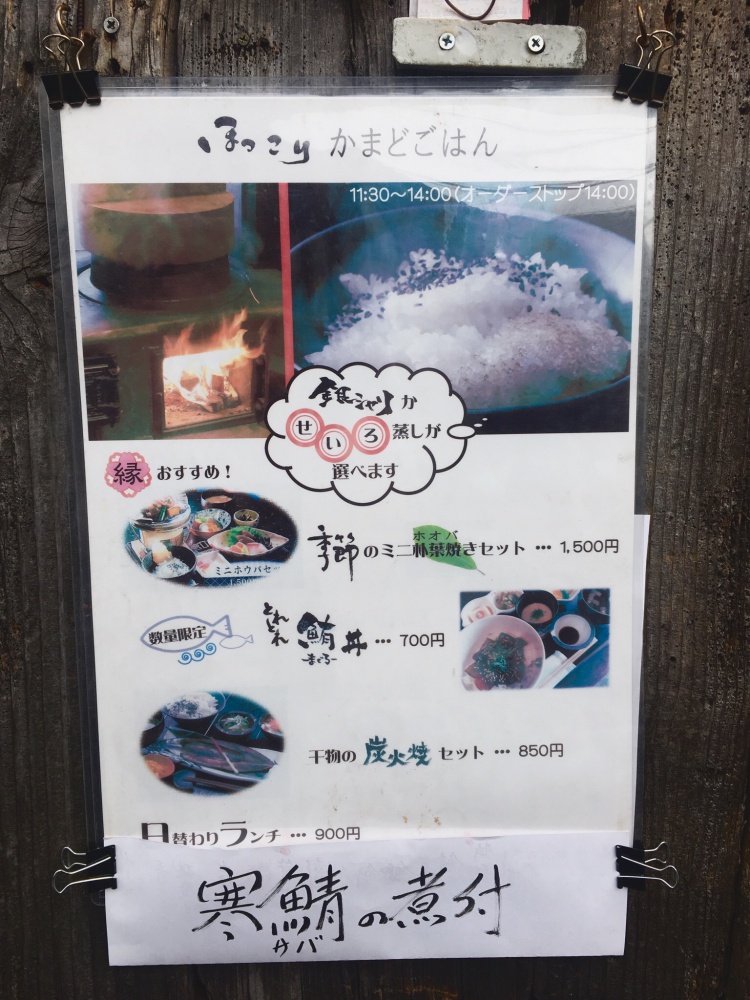 ほっこり かまどごはん
11:30～14:00(オーダーストップ14:00)
銀シャリか
せいろ蒸しが
選べます
縁 おすすめ!
ホオバ
季節のミニ朴葉焼きセット … 1,500円
ミニホウバセッ
1,500
数量限定
とれとれ 鮪丼 … 700円
まぐろ
干物の炭火焼セット … 850円
日替わりランチ … 900円
寒鯖の煮付
サバ